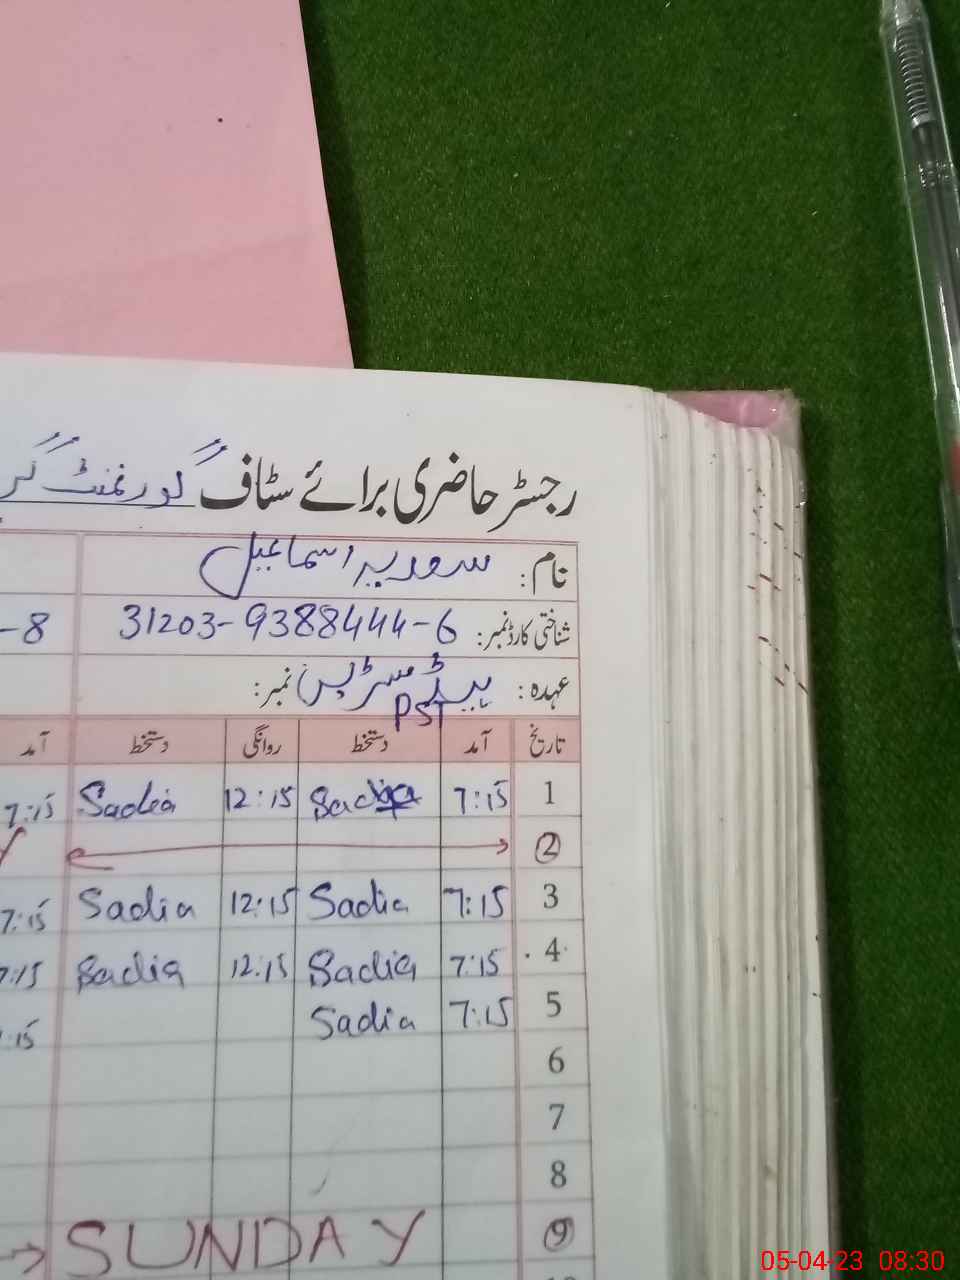 رجسٹر حاضری برائے سٹاف گورنمنٹ گر
نام: سعدیہ اسماعیل
شناختی کارڈ نمبر: 31203-9388444-6
-8
عہدہ: ہیڈ مسٹریس نمبر:
PST
تاریخ آمد دستخط روانگی دستخط آمد
1 7:15 Sadia 12:15 Sadia 7:15
2
3 7:15 Sadia 12:15 Sadia 7:15
4 7:15 Sadia 12:15 Sadia 7:15
5 7:15 Sadia :15
6
7
8
9 SUNDAY
05-04-23 08:30